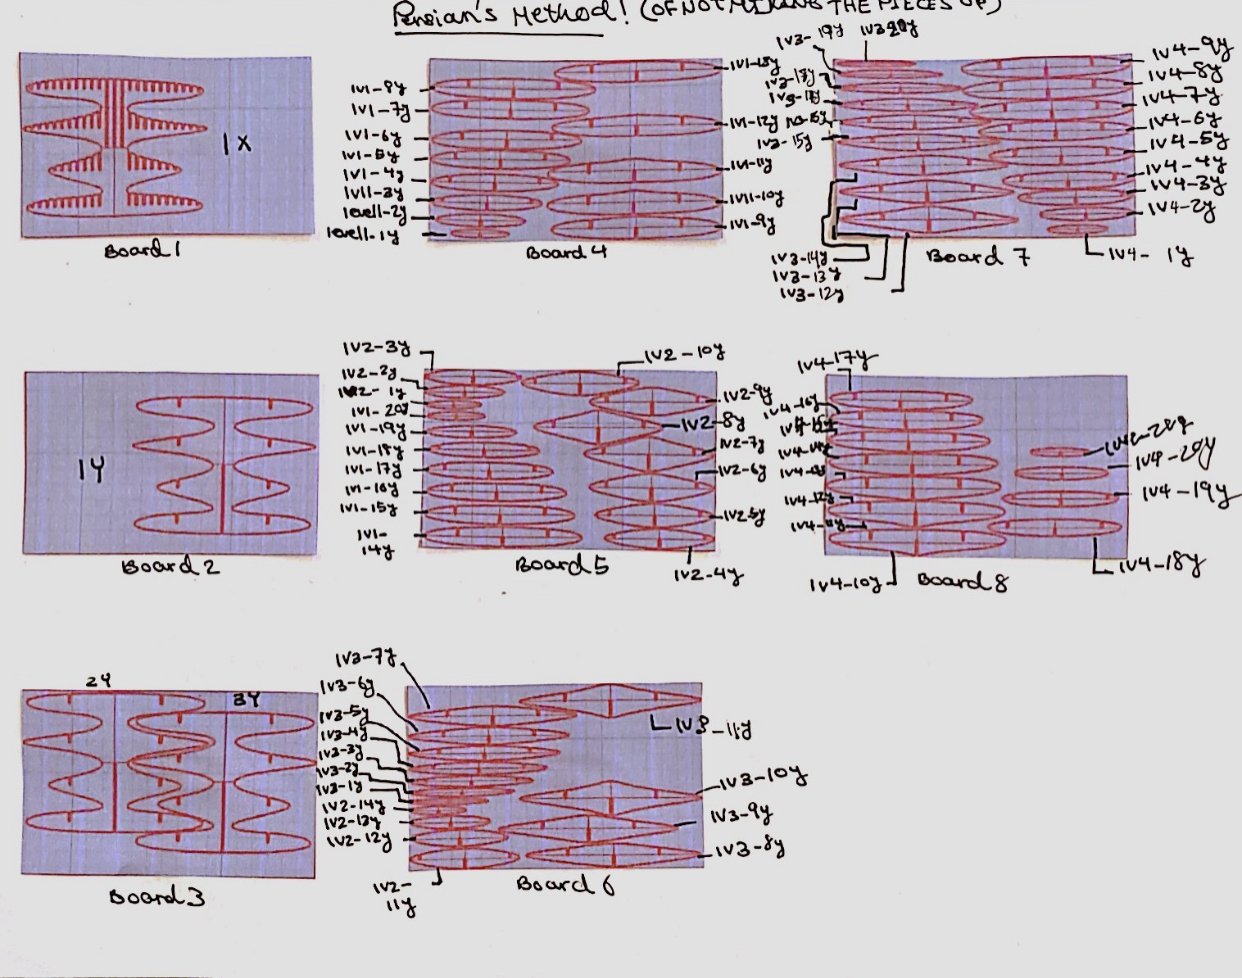 Persian's Method! (OF NOT MIXING THE PIECES UP)
1X
Board 1
1V1-8y
1V1-7y
1V1-6y
1V1-5y
1V1-4y
1V11-3y
level1-2y
level1-1y
1V1-12y
1V1-11y
1V11-10y
1V1-9y
Board 4
1V3-19y
1V3-15y
1V3-14y
1V3-13y
1V3-12y
1V4-9y
1V4-8y
1V4-7y
1V4-6y
1V4-5y
1V4-4y
1V4-3y
1V4-2y
1V4-1y
Board 7
1Y
Board 2
1V2-3y
1V2-2y
1V2-1y
1V1-20y
1V1-19y
1V1-18y
1V1-17y
1V1-16y
1V1-15y
1V1-
14y
1V2-10y
1V2-9y
1V2-8y
1V2-7y
1V2-6y
1V2-5y
1V2-4y
Board 5
1V4-17y
1V4-16y
1V4-12y
1V4-10y
1V4-20y
1V4-19y
1V4-18y
Board 8
2Y
3Y
Board 3
1V3-7y
1V3-6y
1V3-5y
1V3-4y
1V3-3y
1V3-2y
1V3-1y
1V2-14y
1V2-13y
1V2-12y
1V2-
11y
1V3-11y
1V3-10y
1V3-9y
1V3-8y
Board 6